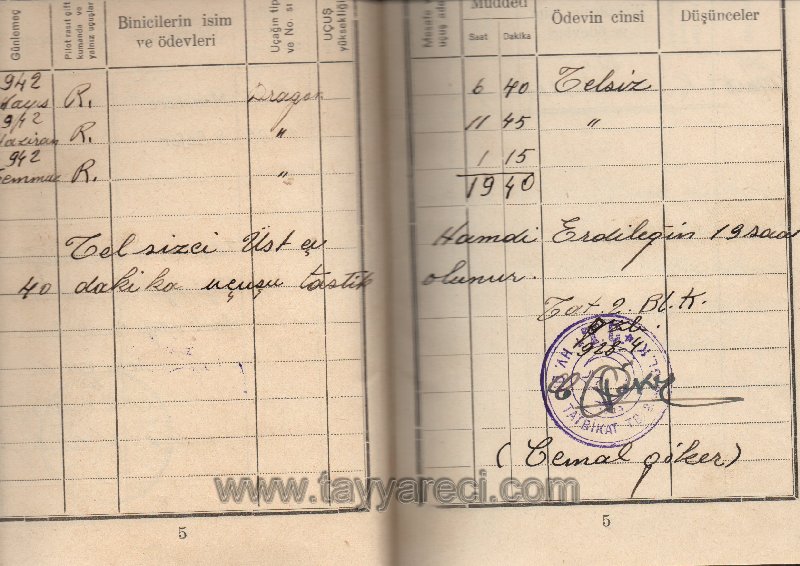 Günlemeç
Pilot rasıt çift
kumanda ve
yalnız uçuşlar
Binicilerin isim
ve ödevleri
Uçağın tipi
ve No. sı
UÇUŞ
yüksekliği
942
Mayıs R. Dragon
942
Haziran R. "
942
Temmuz R. "
Telsizci Üst çv
40 dakika uçuşu tastik
5
Mesafe
uçuş
Müddeti
Saat Dakika
Ödevin cinsi
Düşünceler
6 40 Telsiz
11 45 "
1 15
19 40
Hamdi Erdileğin 19 saa
olunur.
Tat. 2. Bl. K.
928-4
TATBİKAT
(Cemal göker)
5
www.tayyareci.com